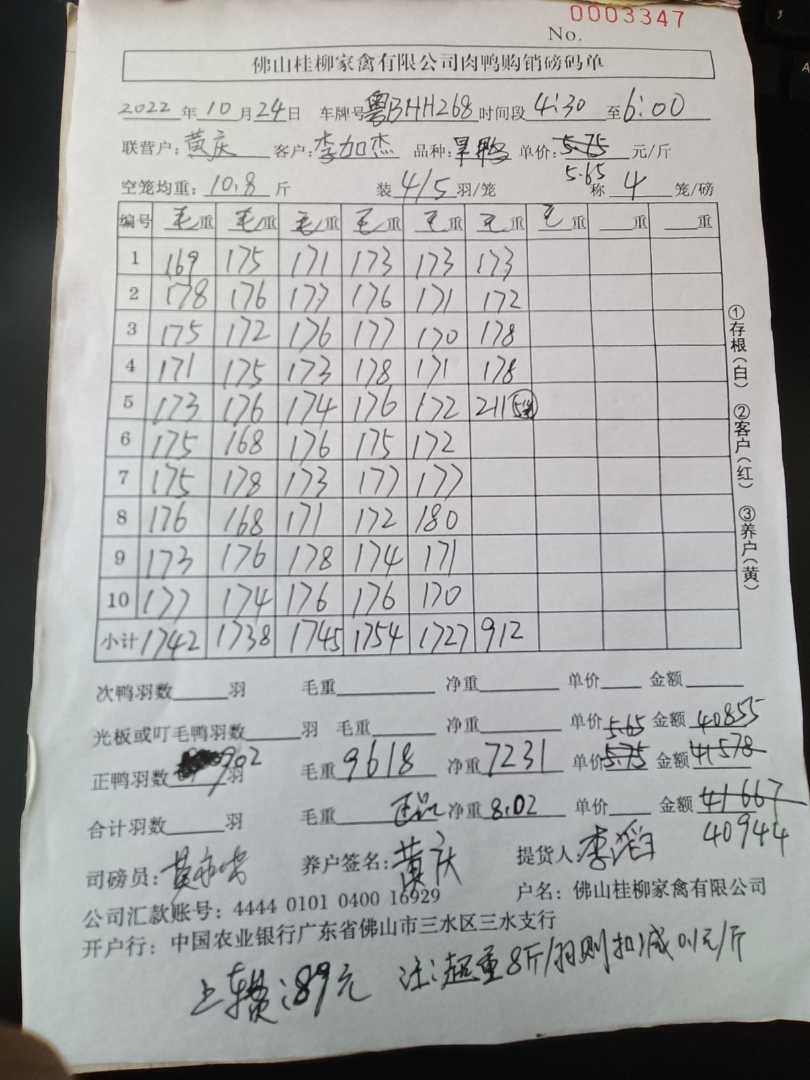 0003347
No.
佛山桂柳家禽有限公司肉鸭购销磅码单
2022年10月24日 车牌号粤BHH268时间段4:30至6:00
联营户:黄庆 客户:李加杰 品种: 单价:5.75元/斤
5.65
空笼均重:10.8斤 装4/5羽/笼 称4笼/磅
编号 毛重 毛重 毛重 毛重 毛重 毛重 毛重 重 重
1 169 175 171 173 173 173
2 178 176 177 176 171 172
3 175 172 176 177 170 178
4 171 175 173 178 171 178
5 173 176 174 176 172 211
6 175 168 176 175 172
7 175 178 173 177 177
8 176 168 171 172 180
9 173 176 178 174 171
10 177 174 176 176 170
小计 1742 1738 1745 1754 1727 912
①存根(白) ②客户(红) ③养户(黄)
次鸭羽数 羽 毛重 净重 单价 金额
光板或叮毛鸭羽数 羽 毛重 净重 单价5.65 金额40855
正鸭羽数902羽 毛重9618 净重7231 单价5.75 金额41578
合计羽数 羽 毛重 净重8.02 单价 金额41667
40944
司磅员: 养户签名:黄庆 提货人:李滔
公司汇款账号:4444 0101 0400 16929 户名:佛山桂柳家禽有限公司
开户行:中国农业银行广东省佛山市三水区三水支行
上车费:89元 注:超重8斤/羽则扣减0.1元/斤